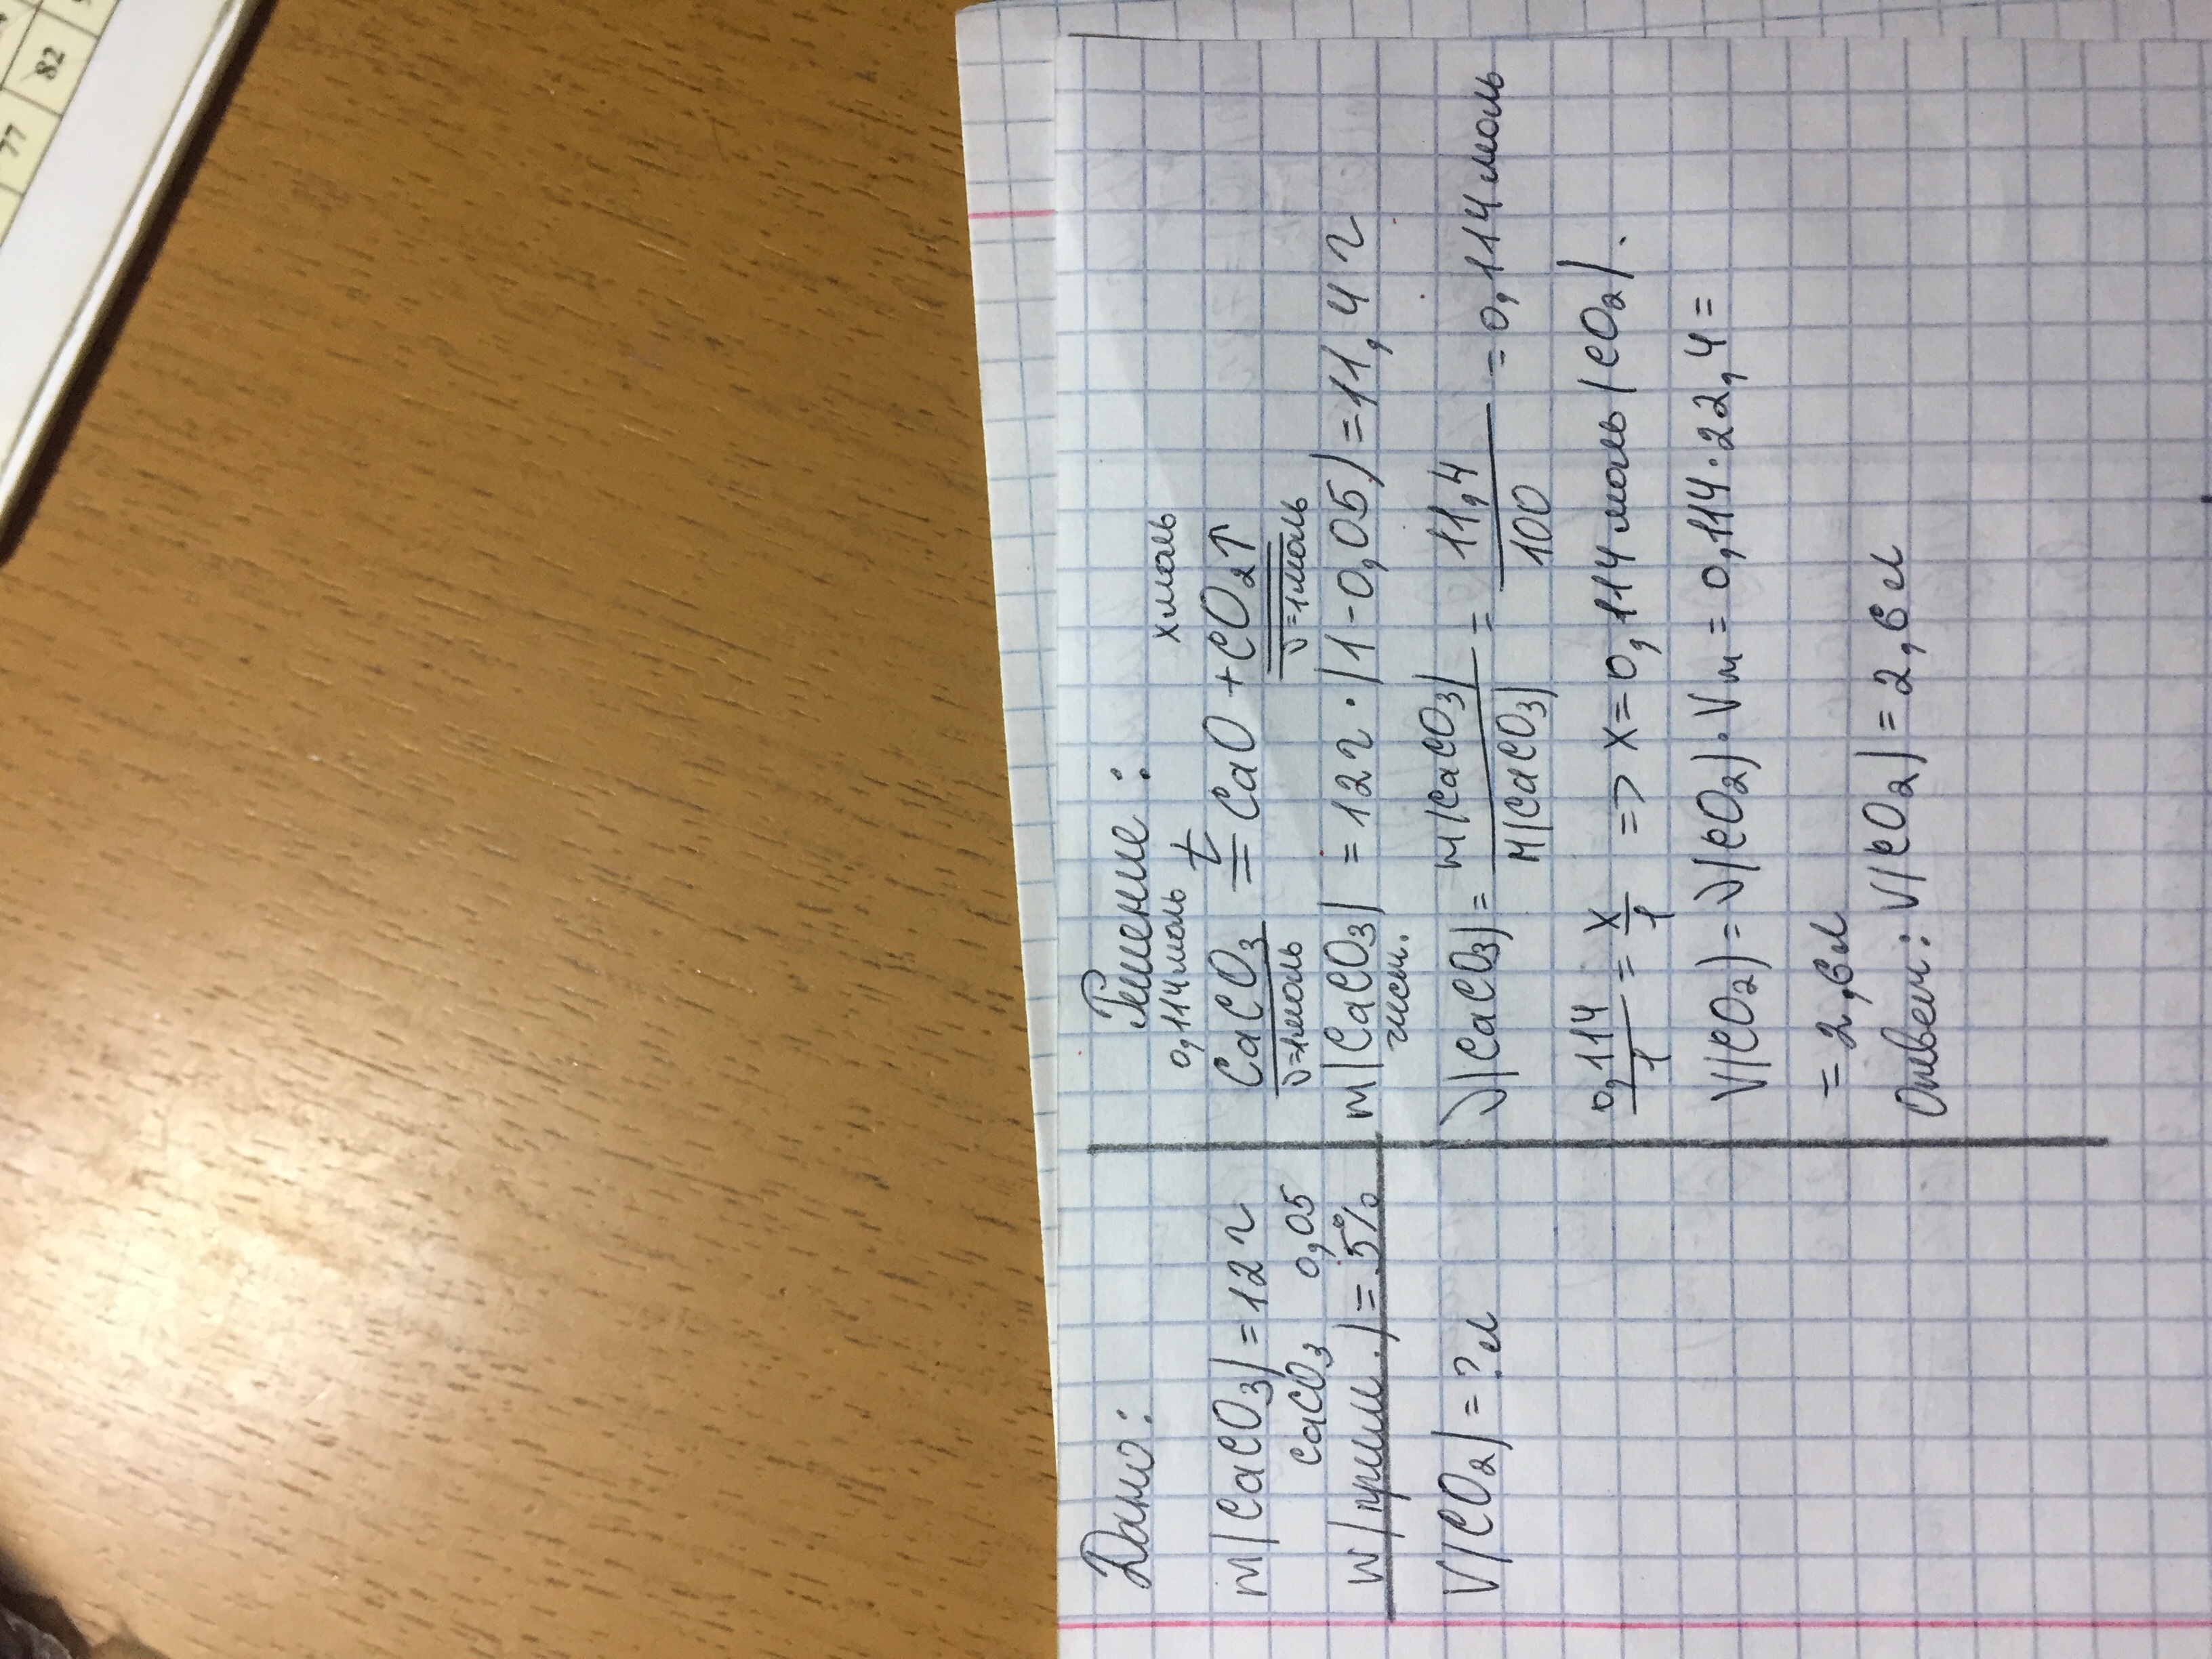 77 82
Дано:
m(CaCO3) = 12 г
CaCO3 0,05
w(прим.) = 5%
V(CO2) = ? л
Решение:
0,114 моль х моль
CaCO3 =t= CaO + CO2↑
ν=1моль ν=1моль
m(CaCO3) = 12 г · (1-0,05) = 11,4 г
чист.
ν(CaCO3) = m(CaCO3)/M(CaCO3) = 11,4/100 = 0,114 моль
0,114/1 = x/1 => x = 0,114 моль (CO2).
V(CO2) = ν(CO2) · Vm = 0,114 · 22,4 =
= 2,6 л
Ответ: V(CO2) = 2,6 л